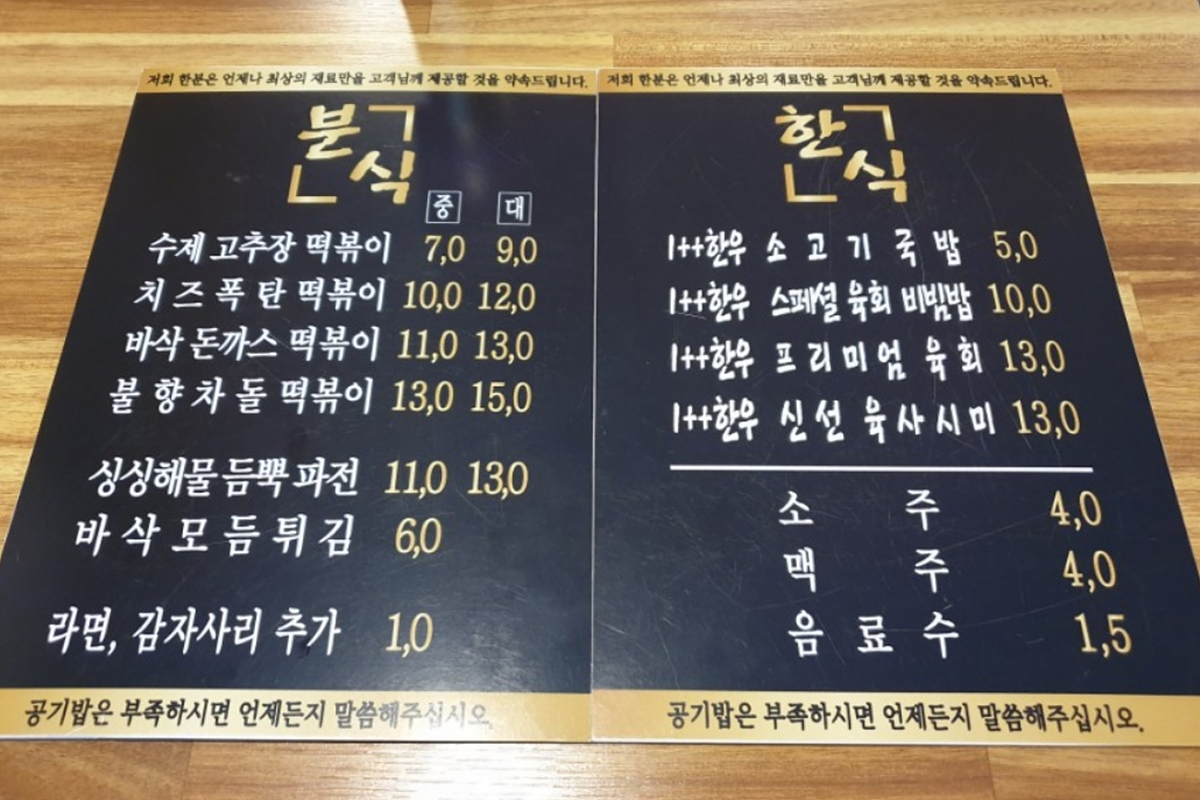 저희 한분은 언제나 최상의 재료만을 고객님께 제공할 것을 약속드립니다.
분식
중 대
수제 고추장 떡볶이 7,0 9,0
치즈폭탄 떡볶이 10,0 12,0
바삭 돈까스 떡볶이 11,0 13,0
불향차돌 떡볶이 13,0 15,0
싱싱해물 듬뿍 파전 11,0 13,0
바삭모듬튀김 6,0
라면, 감자사리 추가 1,0
공기밥은 부족하시면 언제든지 말씀해주십시오.
저희 한분은 언제나 최상의 재료만을 고객님께 제공할 것을 약속드립니다.
한식
1++한우 소고기국밥 5,0
1++한우 스페셜 육회 비빔밥 10,0
1++한우 프리미엄 육회 13,0
1++한우 신선 육사시미 13,0
소주 4,0
맥주 4,0
음료수 1,5
공기밥은 부족하시면 언제든지 말씀해주십시오.